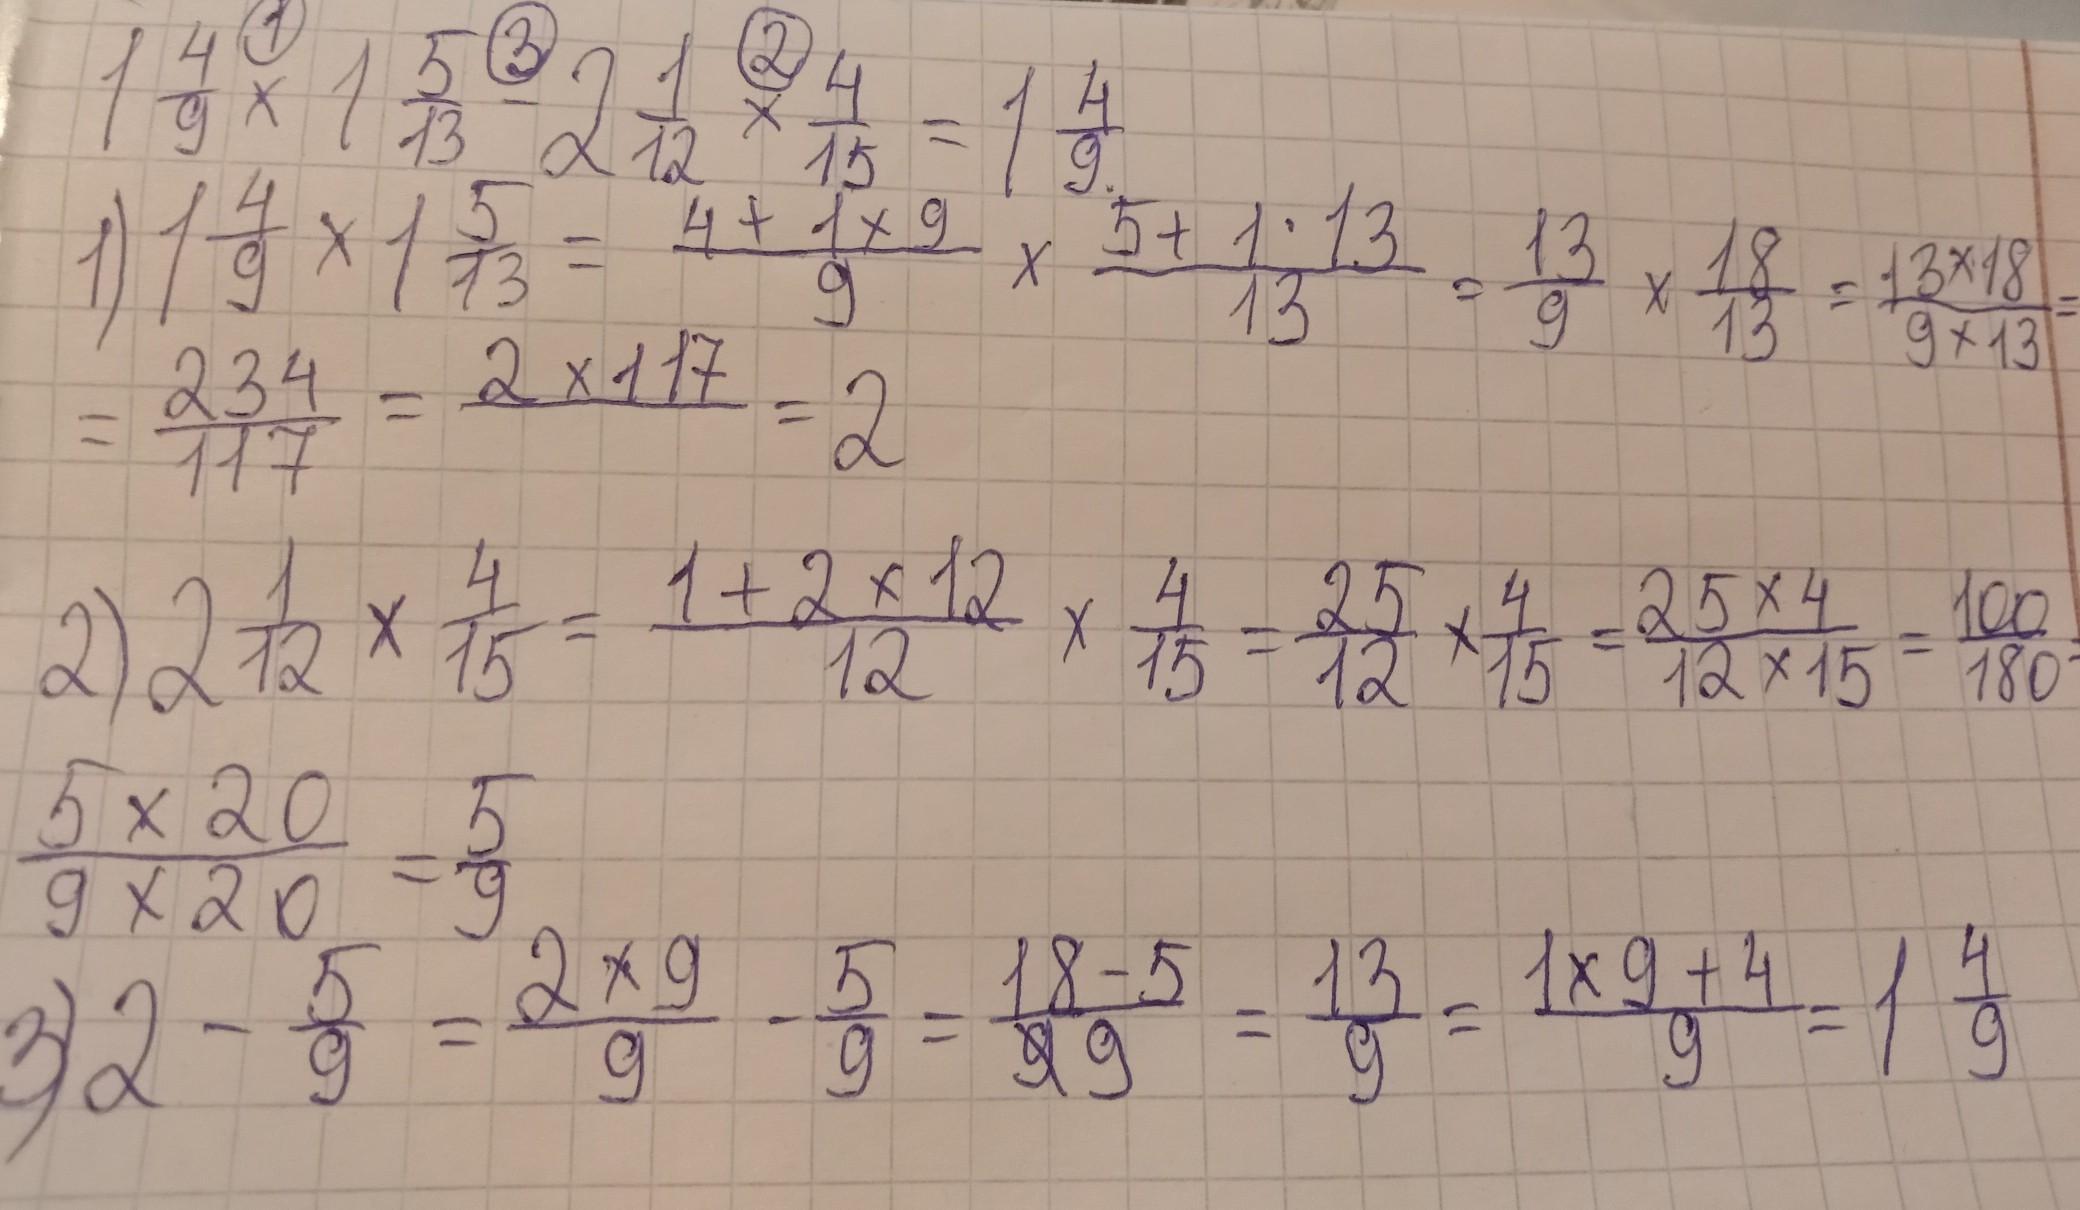 1 4/9 × 1 5/13 - 2 1/12 × 4/15 = 1 4/9
① ③ ②
1) 1 4/9 × 1 5/13 = (4 + 1 × 9)/9 × (5 + 1 · 13)/13 = 13/9 × 18/13 = (13 × 18)/(9 × 13) =
= 234/117 = 2 × 117 = 2
2) 2 1/12 × 4/15 = (1 + 2 × 12)/12 × 4/15 = 25/12 × 4/15 = (25 × 4)/(12 × 15) = 100/180 =
(5 × 20)/(9 × 20) = 5/9
3) 2 - 5/9 = (2 × 9)/9 - 5/9 = (18 - 5)/9 = 13/9 = (1 × 9 + 4)/9 = 1 4/9